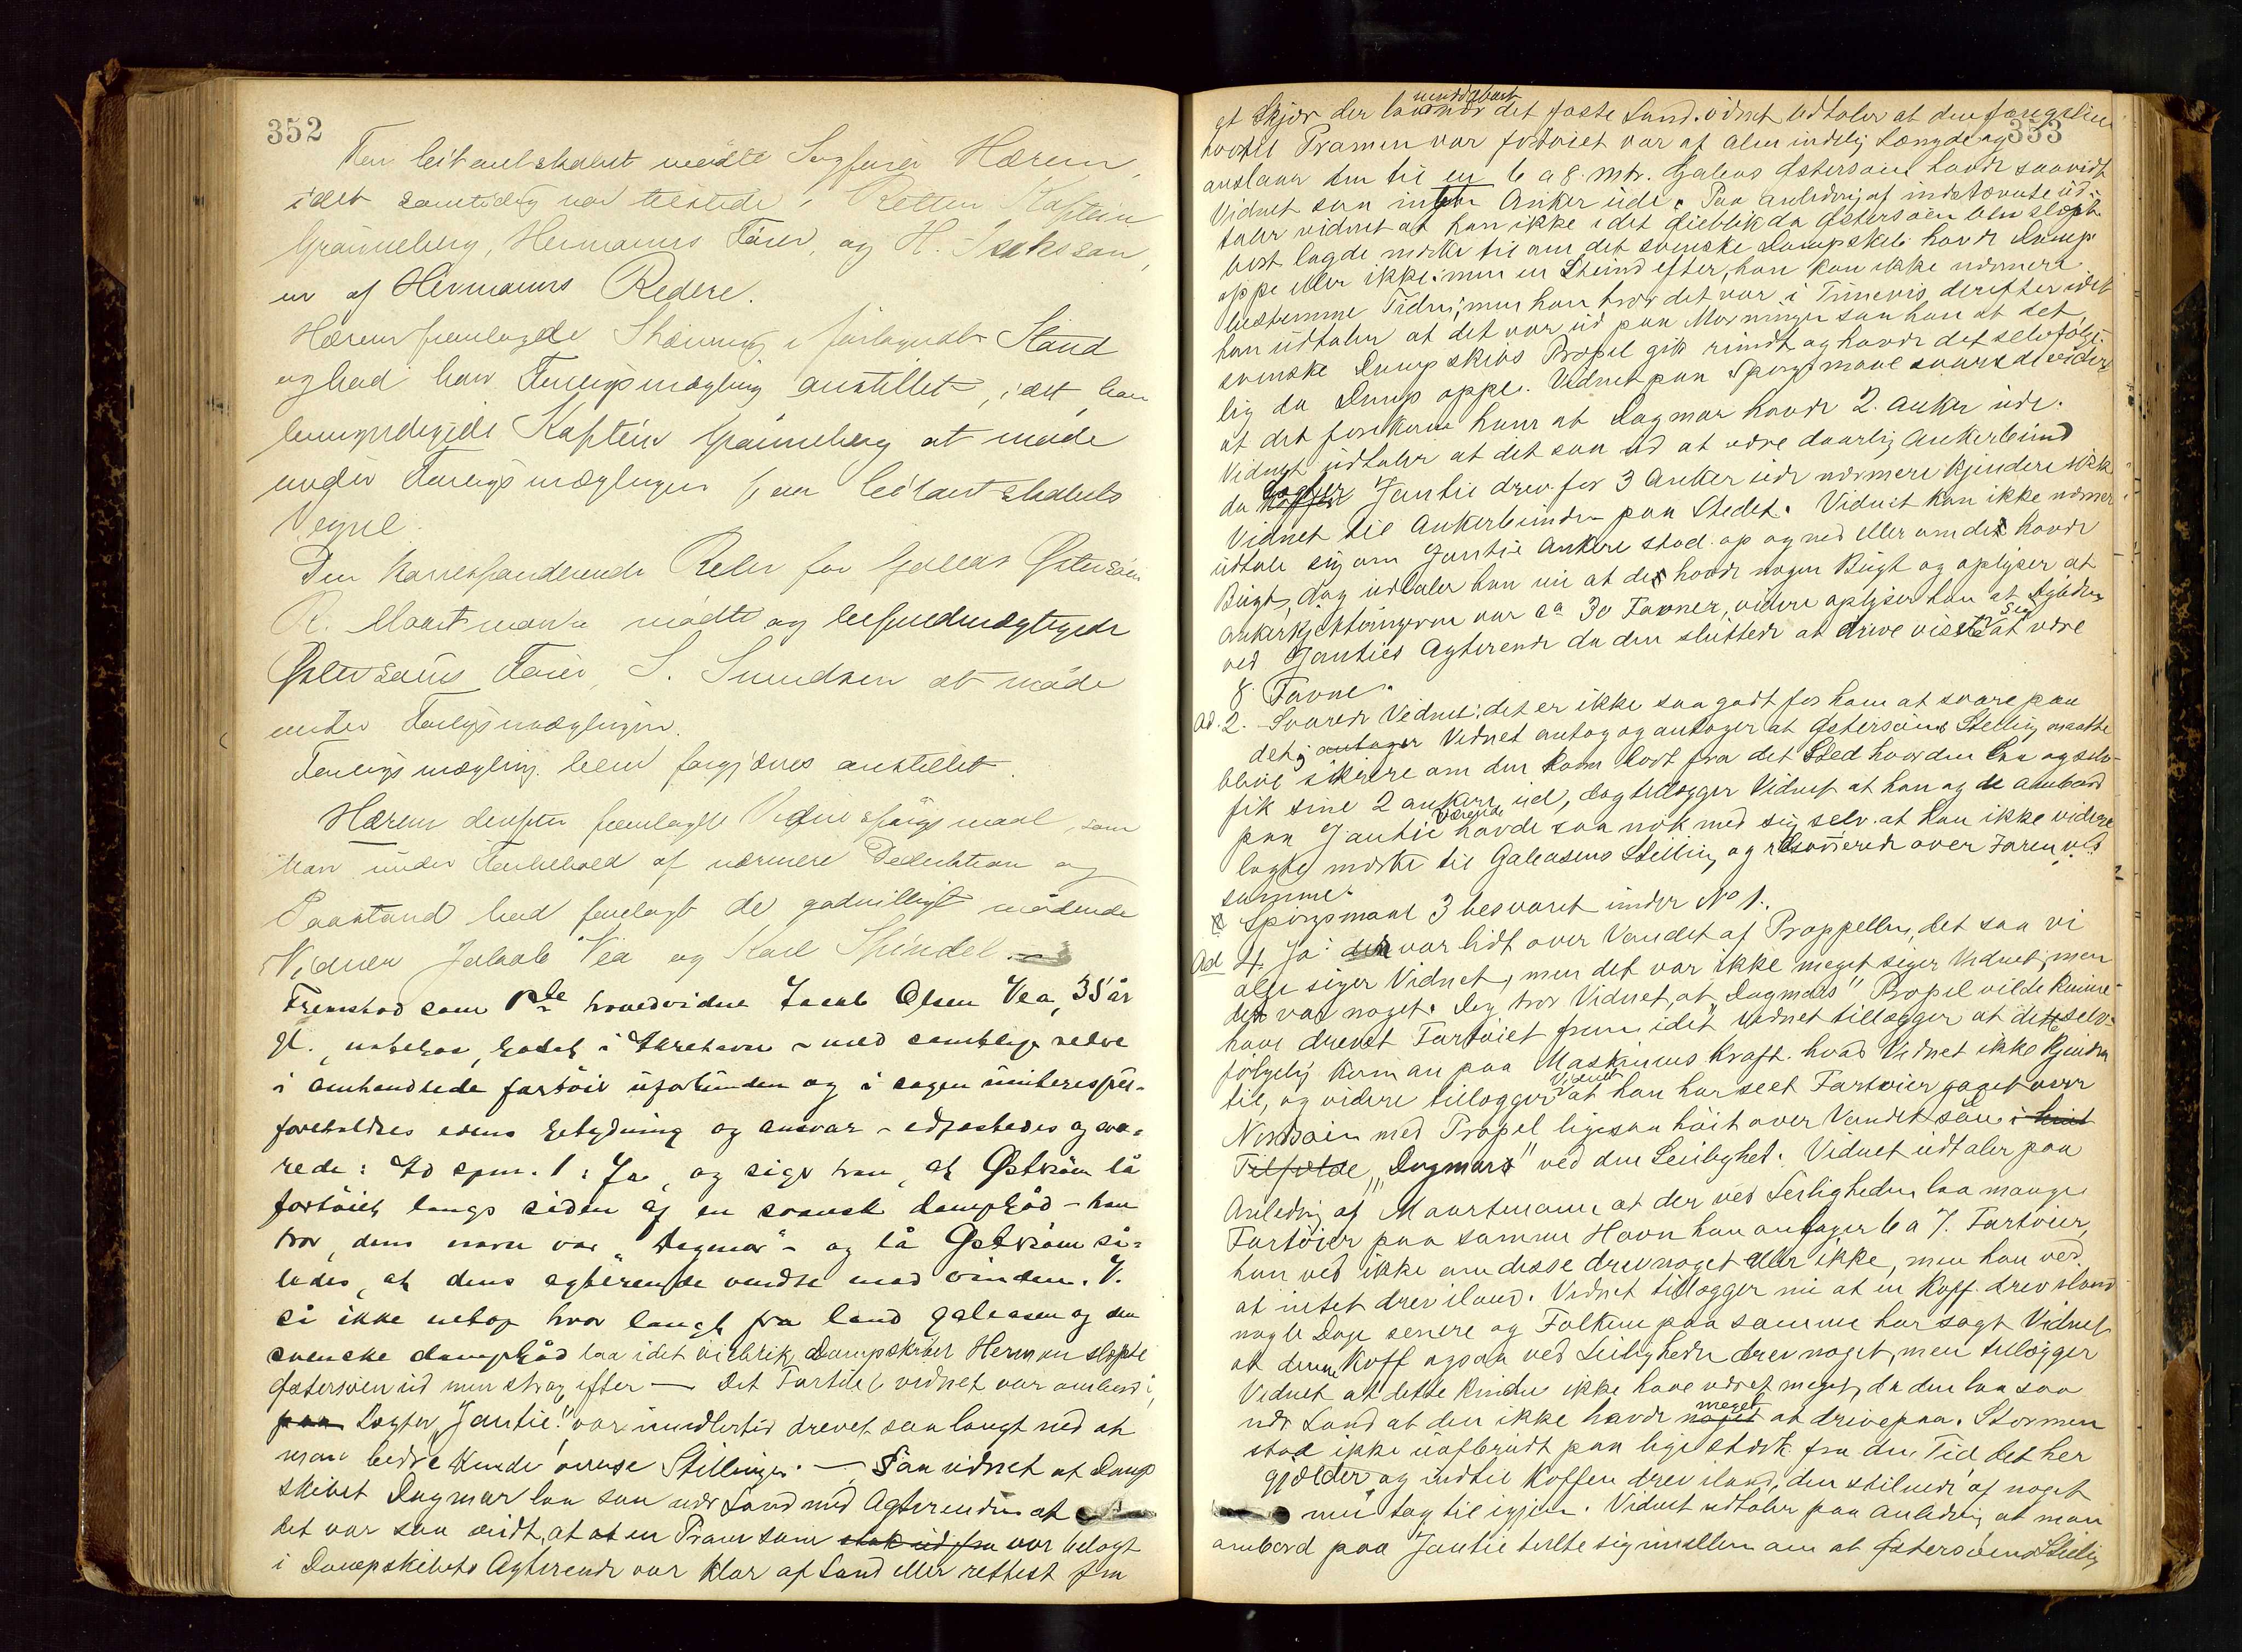 352
For leietantskabet mødte Sagfører Hærem,
idet samtidig var tilstede i Retten Kaptein
Grönneberg, Hermanns Förer, og H. Isaksson,
en af Hermanns Redere.
Hærem fremlagde Stævning i forkyndt Stand
og bad han Forligsmægling anstillet, idet han
bemyndigede Kaptein Grönneberg at møde
under Forligsmæglingen paa
Vegne.
Den korresponderende Reder for Galeas Østersöen
R. Maartmann mødte og befuldmægtigede
Østersöens Förer, S. Svendsen at möde
under Forligsmæglingen.
Forligsmægling blev forgjæves anstillet.
Hærem derefter fremlagde Vidnespörgsmaal, som
han under Forbehold af nærmere Deduktion og
Paastand bad forelagt de godvilligt mödende
Vidner Jakob Vea og Karl Spindel.
Fremstod som 1ste hovedvidne Jacob Olsen Vea, 35 år
gl., ubeheftet, bosat i Åkrehavn – med samtlige redere
i omhandlede fartöier uforbunden og i sagen uinteresseret
foreholdtes edens betydning og ansvar – edfæstedes og sva-
rede: Ad spm. 1: Ja, og siger han, at Østersöen lå
fortöiet langs siden af en svensk dampbåd – han
tror, dens navn var "Dagmar" – og lå Østersöen så-
ledes, at dens agterende vendte mod vinden. V.
så ikke netop hvor langt fra land galeasen og den
svenske dampbåd laa i det öieblik Dampskibet Herman slæpte
Østersöen ud men strax efter — Det Fartöi vidnet var ombord i
paa Logter "Jantie" var imidlertid drevet saa langt ned at
man bedre kunde overse Stillingen. — Saa vidnet at Damp
skibet Dagmar laa saa nær Land med Agterenden at
det var saa vidt, at at en Pram som stak ud fra var belagt
i Dampskibets Agterende var klar af Land eller rettest fra
353
et Skjær der laa umiddelbart nær det faste Land. Vidnet udtaler at den fangeline
hvortil Pramen var fortöiet var af almindelig Længde og
anslaar den til en 6 a 8 mtr. Galeas Østersöen havde saavidt
Vidnet saa ingen Anker ude. Paa anledning af indstævnte ud-
taler vidnet at han ikke i det öieblik da Østersöen blev slæpt
bort lagde mærke til om det svenske Dampskib havde Damp
oppe eller ikke: men en Stund efter, han kan ikke nærmere
bestemme Tiden; men han tror det var i Timevis derefter idet
han udtaler at det var ud paa Morningen saa han at det
svenske Dampskibs Propel gik rundt og havde det selvfölge-
lig da Damp oppe. Vidnet paa Spörgsmaal svarede videre
at det forekom ham at Dagmar havde 2 Anker ude.
Vidnet udtaler at det saa ud at være daarlig Ankerbund
da Logter Jantie drev for 3 Anker uden nærmere Kjendere
Vidnet til Ankerbunden paa Stedet. Vidnet kan ikke nærmere
udtale sig om Jantie Ankere stod op og ned eller om det havde
Bugt, dog udtaler han nu at det havde nogen Bugt og oplyser at
Ankerkjettingerne var ca 30 Favner, videre oplyser han at Dybden
ved Janties Agterende da den sluttede at drive viste sig at være
8 Favne.
Ad. 2. Svarede Vidnet: det er ikke saa godt for ham at svare paa
det; antager Vidnet antog og antager at Østersöens Stilling maatte
blive sikrere om den kom bort fra det Sted hvor den laa og selv
fik sine 2 ankere ud, dog tillægger Vidnet at han og de ombord
paa Jantie værende havde saa nok med sig selv at han ikke videre
lagde mærke til Galeasens Stilling og resonnerede over Faren ved
samme.
Spörgsmaal 3 besvaret under No 1.
Ad 4. Ja: der var lidt over Vandet af Proppellen, det saa vi
alle siger Vidnet, men det var ikke meget siger Vidnet; men
det var noget. Dog tror Vidnet at "Dagmars" Propel vilde kunne
have drevet Fartöiet frem idet Vidnet tillægger at dette selv-
fölgelig kom an paa Maskinens Kraft hvad Vidnet ikke kjender
til, og videre tillægger Vidnet at han har seet Fartöier gaaet over
Nordsöen med Propel ligesaa höit over Vandet som i hint
Tilfælde "Dagmars" ved den Leilighet. Vidnet udtaler paa
Anledning af Maartmann at der ved Leiligheden laa mange
Fartöier paa samme Havn han antager 6 a 7 Fartöier,
han ved ikke om disse drev noget eller ikke, men han ved
at intet drev iland. Vidnet tillægger nu at en Koff drev iland
nogle Dage senere og Folkene paa samme har sagt Vidnet
at denne Koff ogsaa ved Leiligheden drev noget, men tillægger
Vidnet at dette kunde ikke have været meget, da den laa saa
nær Land at den ikke havde noget meget at drive paa. Stormen
stod ikke uafbrudt paa lige stærk fra den Tid det her
gjælder og indtil Koffen drev iland, den stilnede af noget
men tog til igjen. Vidnet udtaler paa Anledning at man
ombord paa Jantie talte sig imellem om at Østersöens Stilling